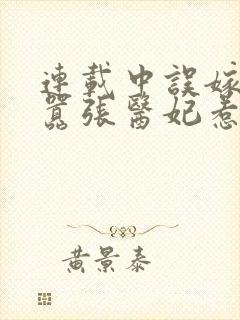 連載中誤嫁
囂張醫妃惹
黃景泰